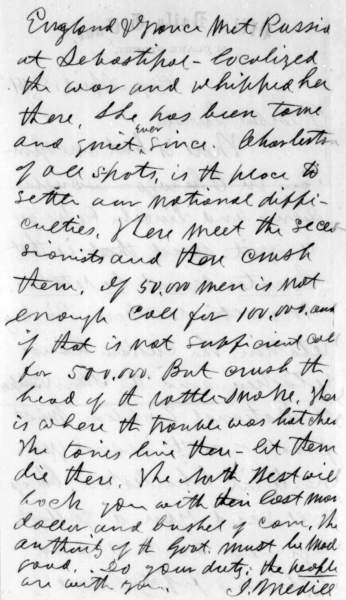 England & France met Russia
at Sebastipol - localized
the war and whipped her
there. She has been tame
and quiet ever since. Charleston
of all spots, is the place to
settle our national diffi-
culties. There meet the seces-
sionists and there crush
them. If 50,000 men is not
enough call for 100,000. and
if that is not sufficient call
for 500,000. But crush th
head of th rattle-snake. Ther
is where th trouble was hatched
The tories live there - let them
die there. The North West will
back you with their last man
dollar, and bushel of corn. The
authority of the Govt. must be made
good. Do your duty; the people
are with you. J. Medill